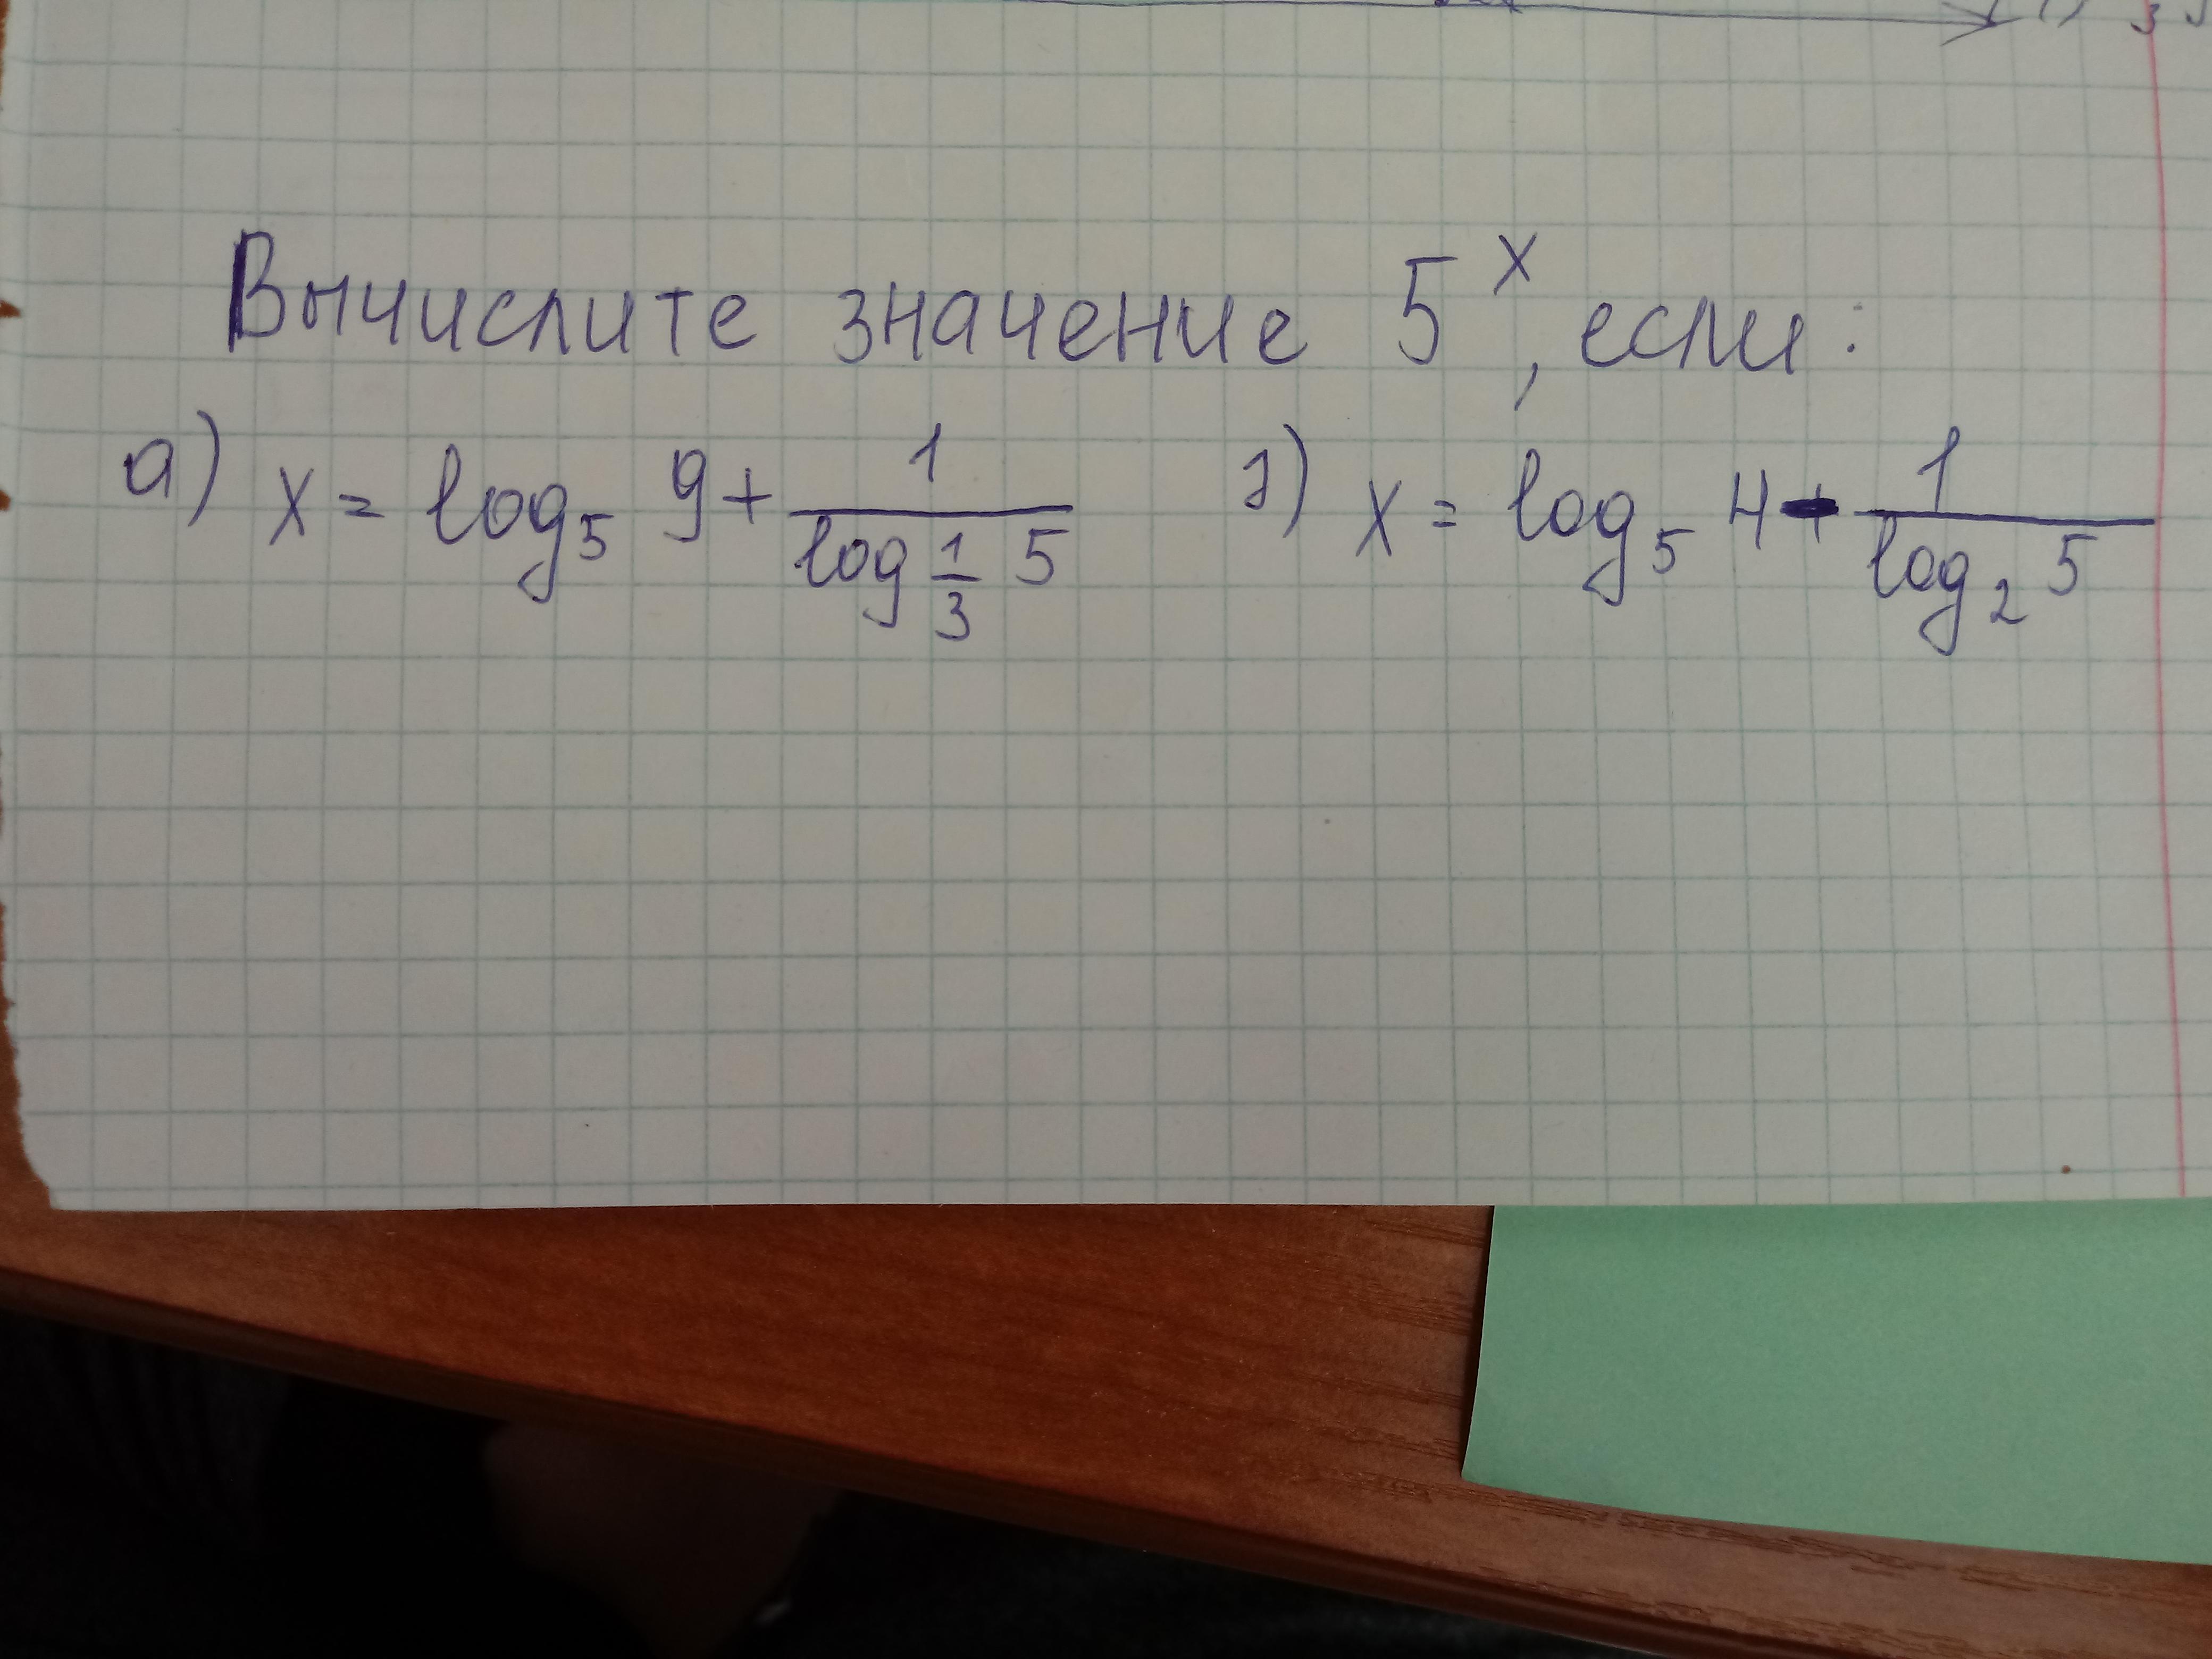 Вычислите значение 5^x, если:
а) x = log_5 9 + 1/(log_{1/3} 5) г) x = log_5 4 - 1/(log_2 5)